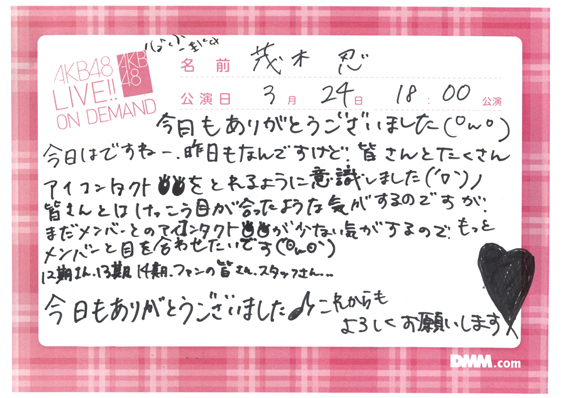 AKB48
LIVE!!
ON DEMAND
AKB
48
名前 茂木忍
公演日 3月 24日 18:00 公演
今日もありがとうございました(°ω°)
今日はですねー、昨日もなんですけど!皆さんとたくさん
アイコンタクトをとれるように意識しました('▽')ノ
皆さんとはけっこう目が合ったような気がするのですが、
まだメンバーとのアイコンタクトが少ない気がするので、もっと
メンバーと目を合わせたいです(°ω°)
12期さん、13期、14期、ファンの皆さん、スタッフさん...
今日もありがとうございました♪これからも
よろしくお願いします
DMM.com